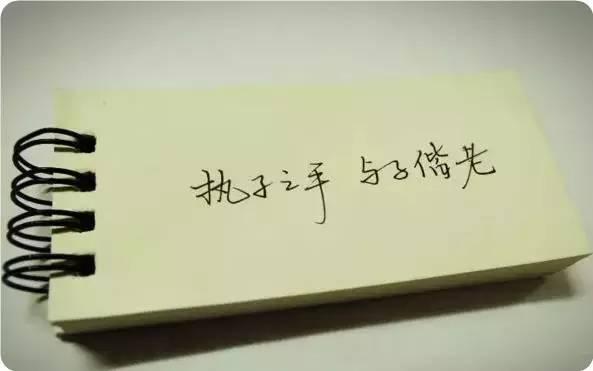 执子之手 与子偕老